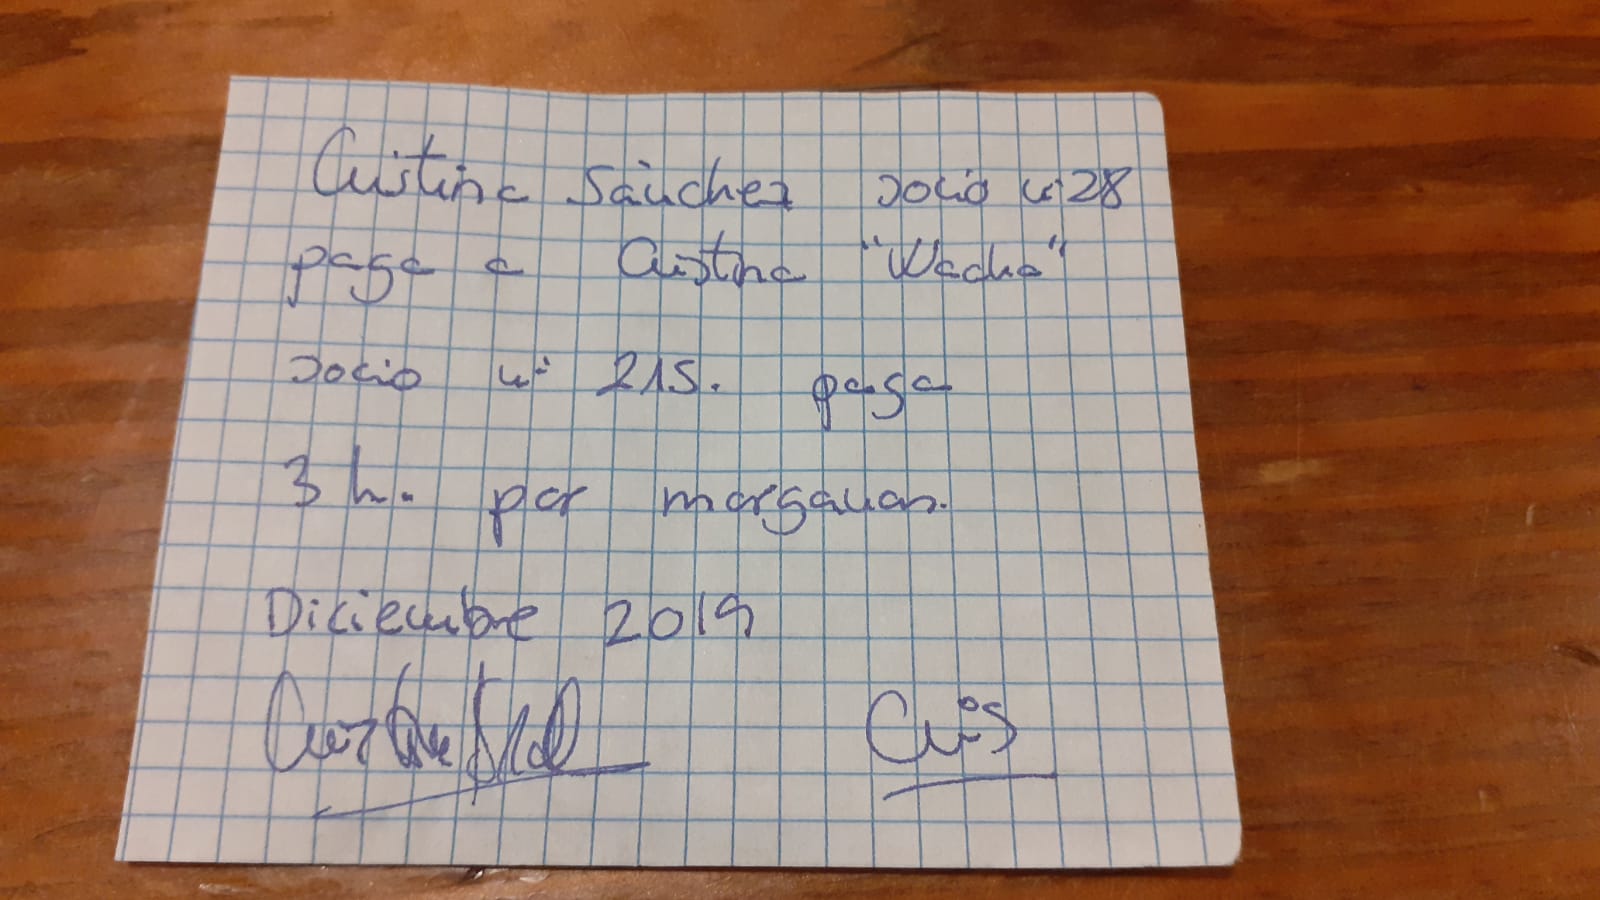 Cristina Sánchez socio nº 28
paga a Cristina "Wacha"
socio nº 215. paga
3 h. por morgauan.
Diciembre 2019
Cris